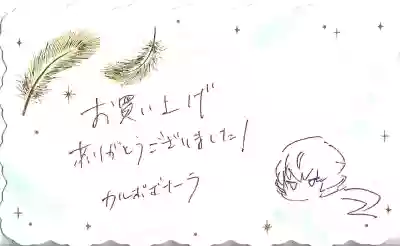 お買い上げ
ありがとうございました!
カルボボナーラ